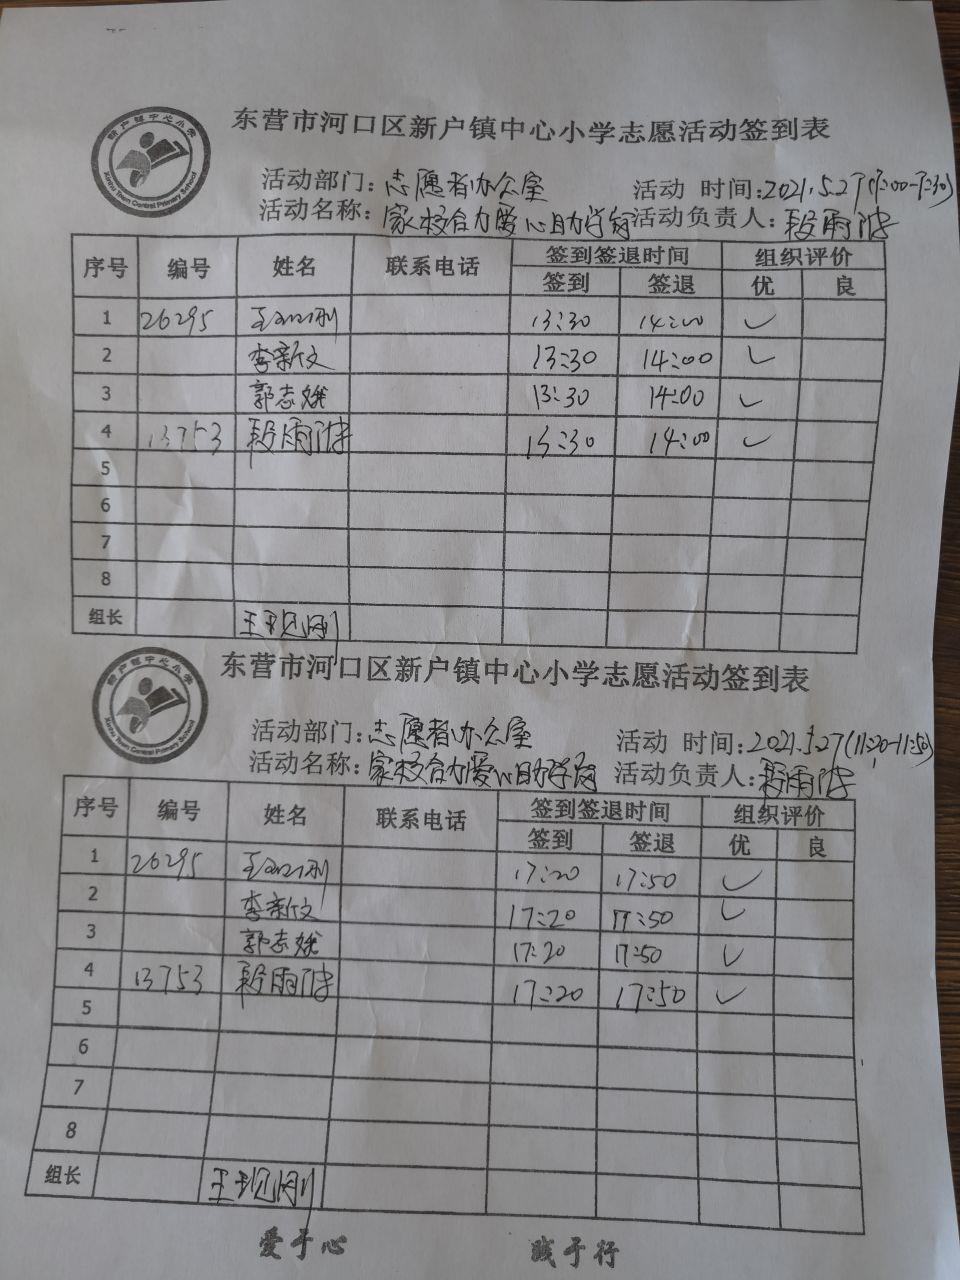 东营市河口区新户镇中心小学志愿活动签到表
新户镇中心小学
Xinhu Town Central Primary School
活动部门：志愿者办公室 活动 时间：2021.5.27(7:00-7:30)
活动名称：家校合力爱心助学岗 活动负责人：段雨
序号 编号 姓名 联系电话 签到签退时间 组织评价
签到 签退 优 良
1 26295 王 刚 13:30 14:00 ✓
2 李新文 13:30 14:00 ✓
3 郭志娥 13:30 14:00 ✓
4 13753 段雨 13:30 14:00 ✓
5
6
7
8
组长 王现刚
东营市河口区新户镇中心小学志愿活动签到表
新户镇中心小学
Xinhu Town Central Primary School
活动部门：志愿者办公室 活动 时间：2021.5.27(11:20-11:50)
活动名称：家校合力爱心助学岗 活动负责人：段雨
序号 编号 姓名 联系电话 签到签退时间 组织评价
签到 签退 优 良
1 26295 王 刚 17:20 17:50 ✓
2 李新文 17:20 17:50 ✓
3 郭志娥 17:20 17:50 ✓
4 13753 段雨 17:20 17:50 ✓
5
6
7
8
组长 王现刚
爱于心 践于行